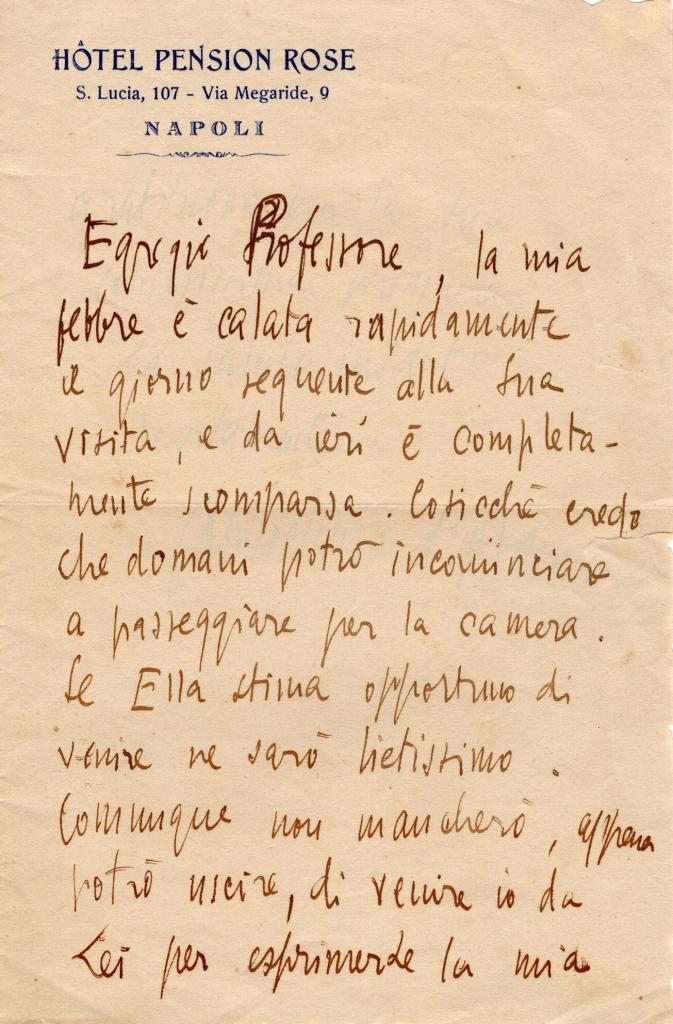 HÔTEL PENSION ROSE
S. Lucia, 107 - Via Megaride, 9
NAPOLI
Egregio Professore, la mia
febbre è calata rapidamente
il giorno seguente alla Sua
visita, e da ieri è completa-
mente scomparsa. Cosicché credo
che domani potrò incominciare
a passeggiare per la camera.
Se Ella stima opportuno di
venire ne sarò lietissimo.
Comunque non mancherò, appena
potrò uscire, di venire io da
Lei per esprimerLe la mia